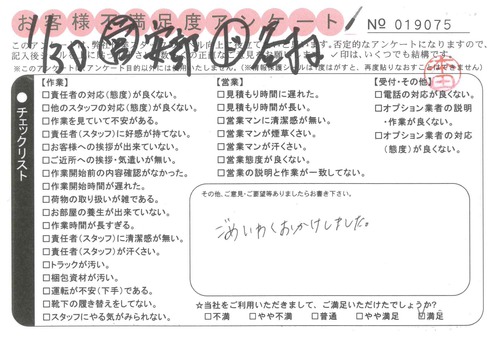 お客様不満足度アンケート
No 019075
【作業】
□責任者の対応(態度)が良くない。
□他のスタッフの対応(態度)が良くない。
□作業を見ていて不安がある。
□責任者(スタッフ)に好感が持てない。
□お客様への挨拶が出来ていない。
□ご近所への挨拶・気遣いが無い。
□作業開始前の内容確認がなかった。
□作業開始時間が遅れた。
□荷物の取り扱いが雑である。
□お部屋の養生が出来ていない。
□作業時間が長すぎる。
□責任者(スタッフ)に清潔感が無い。
□責任者(スタッフ)が汗くさい。
□トラックが汚い。
□梱包資材が汚い。
□運転が不安(下手)である。
□靴下の履き替えをしてない。
□スタッフにやる気がみられない。
チェックリスト
【営業】
□見積もり時間に遅れた。
□見積もり時間が長い。
□営業マンに清潔感が無い。
□営業マンが煙草くさい。
□営業マンが汗くさい。
□営業態度が良くない。
□営業の説明と作業が一致してない。
【受付・その他】
□電話の対応が良くない。
□オプション業者の説明
・作業が良くない。
□オプション業者の対応
(態度)が良くない。
その他、ご意見・ご要望等ありましたらお書き下さい。
ごめいわくおかけしました。
☆当社をご利用いただきまして、ご満足いただけたでしょうか?
□不満 □やや不満 □普通 □やや満足 ☑満足